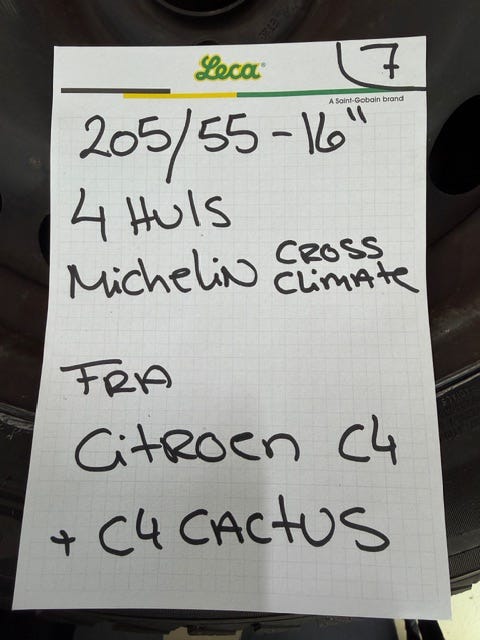 Leca®
7
A Saint-Gobain brand
205/55-16"
4 HULS
Michelin CROSS CLIMATE
FRA
Citroen C4
+ C4 CACTUS